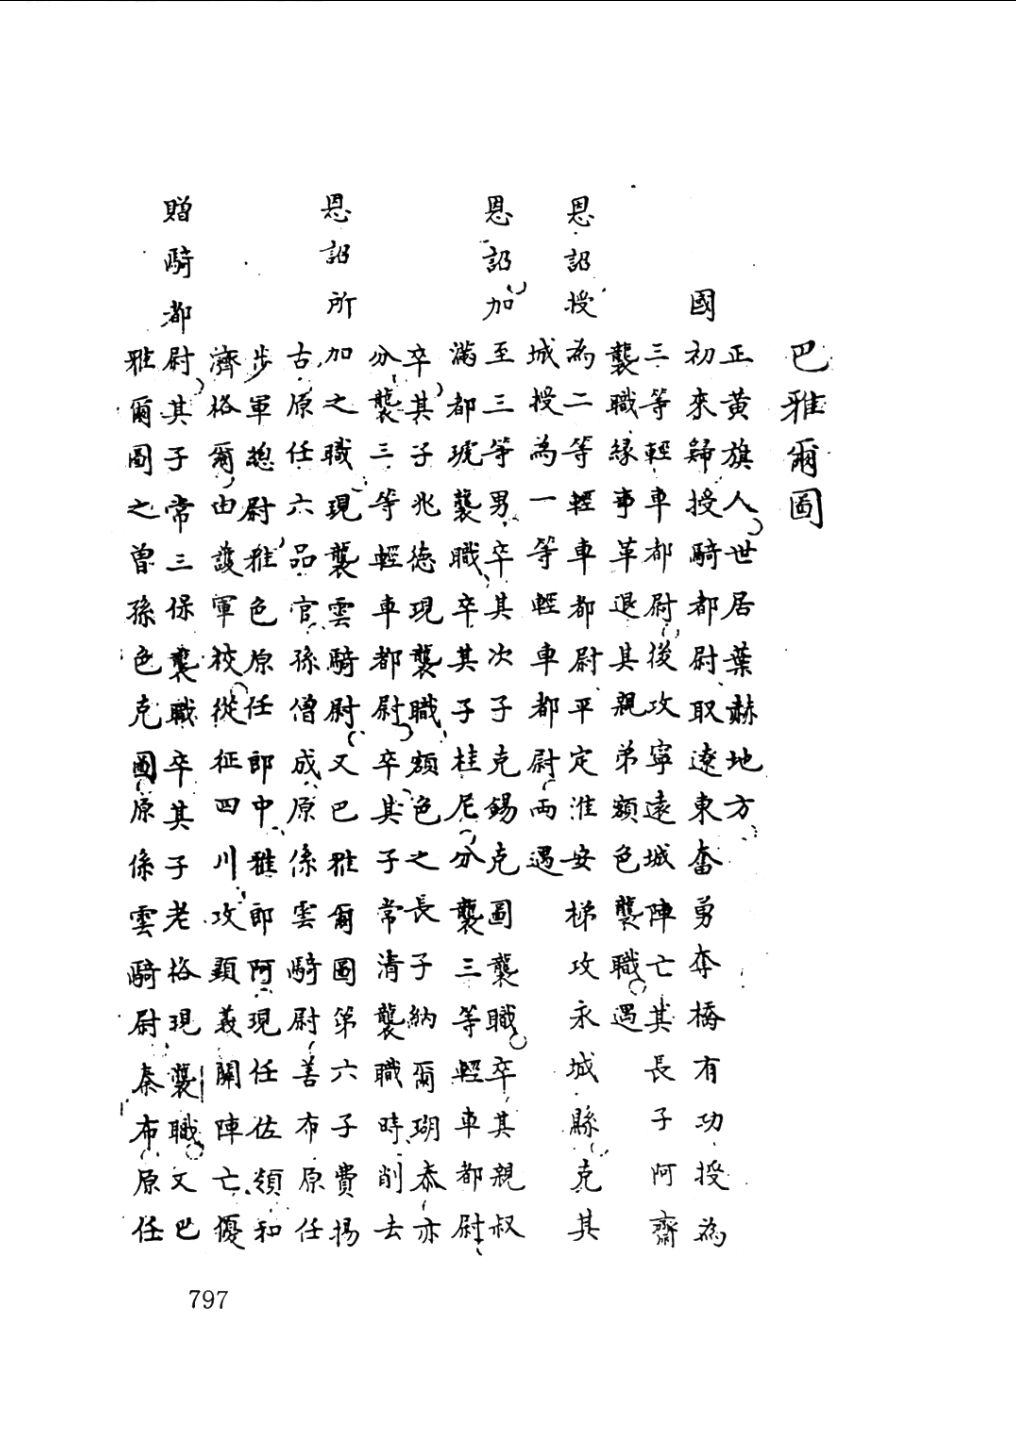 巴雅爾圖
正黃旗人世居葉赫地方
國初來歸授騎都尉取遼東奮勇奪橋有功授為
三等輕車都尉後攻寧遠城陣亡其長子阿齋
襲職緣事革退其親弟額色襲職遇
恩詔授為二等輕車都尉平定淮安梯攻永城縣克其
城授為一等輕車都尉兩遇
恩詔加至三等男卒其次子克錫克圖襲職卒其親叔
滿都琥襲職卒其子桂尼分襲三等輕車都尉
卒其子兆德現襲職額色之長子納爾瑚泰亦
分襲三等輕車都尉卒其子常清襲職時削去
恩詔所加之職現襲雲騎尉又巴雅爾圖第六子費揚
古原任六品官孫僧成原係雲騎尉善布原任
步軍總尉雅色原任郎中雅郎阿現任佐領和
濟格爾由護軍校從征四川攻顯義關陣亡優
贈騎都尉其子常三保襲職卒其子老格現襲職又巴
雅爾圖之曾孫色克圖原係雲騎尉泰布原任
797